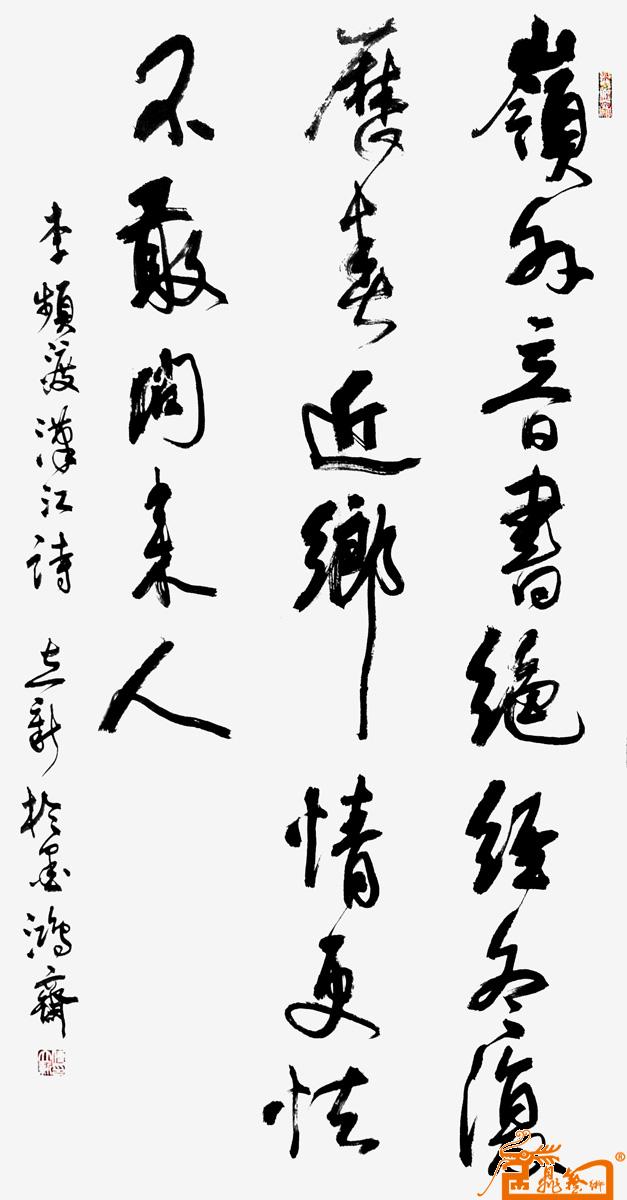 嶺外音書絕經冬復
歷春近鄉情更怯
不敢問來人
李頻渡漢江詩 立新於墨鴻齋